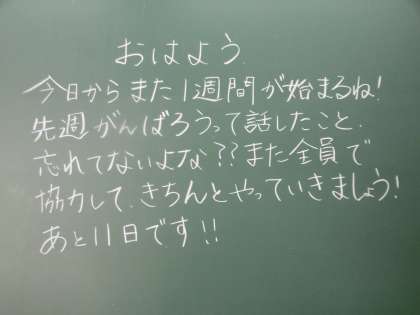 おはよう.
今日からまた1週間が始まるね!
先週がんばろうって話したこと、
忘れてないよな??また全員で
協力して、きちんとやっていきましょう!
あと11日です!!